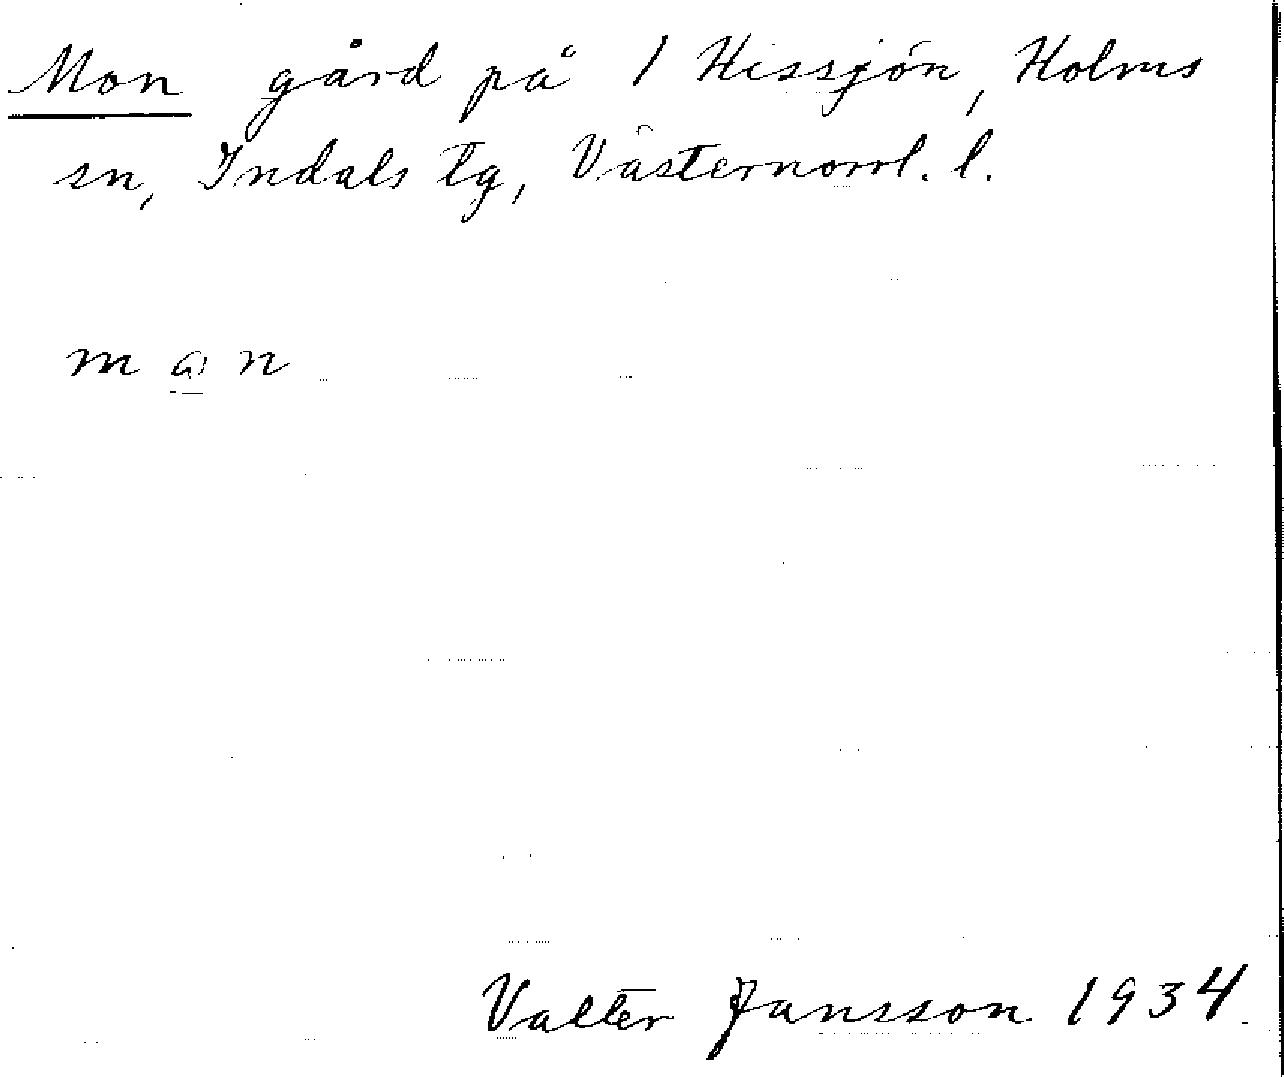 Mon gård på 1 Hissjön, Holms
sn, Indals tg, Västernorrl. l.
man
Valter Jansson 1934.